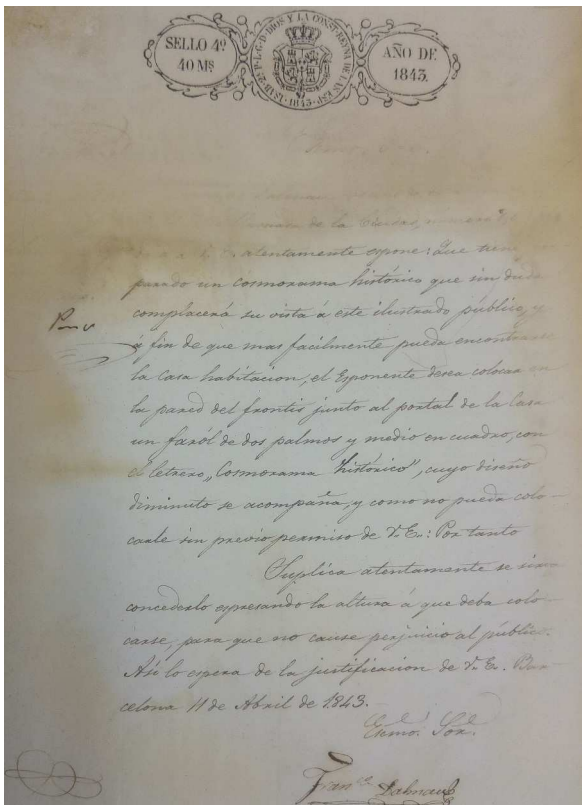 SELLO 4º
40 Ms
ISAB. 2ª P. L. G. D. DIOS Y LA CONST. REYNA DE LAS ESP. 1843.
AÑO DE
1843.
de la Ciudad, numero
atentamente espone: Que tiene
parado un Cosmorama histórico que sin duda
complacerá su vista á este ilustrado público, y
á fin de que mas facilmente pueda encontrarse
la Casa habitacion, el Esponente desea colocar en
la pared del frontis junto al portal de la Casa
un faról de dos palmos y medio en cuadro, con
el letrero, „Cosmorama histórico”, cuyo diseño
diminuto se acompaña, y como no pueda colo-
carle sin previo permiso de V. E.: Por tanto
Suplica atentamente se sirva
concederlo espresando la altura á que deba colo-
carse, para que no cause perjuicio al público.
Así lo espera de la justificacion de V. E. Bar-
celona 11 de Abril de 1843.
Exmo. Sor.
Franco. Dalmau